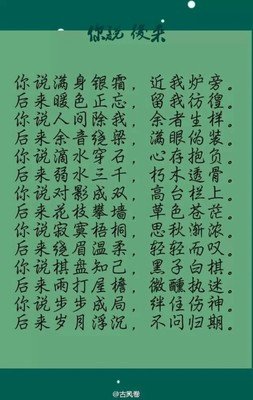 你说 後来
你说满身银霜，近我炉旁。
后来暖色正忘，留我彷徨。
你说人间除我，余者生样。
后来余音绕梁，满眼伪装。
你说滴水穿石，心存抱负。
后来弱水三千，朽木透骨。
你说对影成双，高台栏上。
后来花枝攀墙，草色苍茫。
你说寂寞梧桐，思秋渐浓。
后来绕眉温柔，轻轻而叹。
你说棋盘知己，黑子白棋。
后来雨打屋檐，微醺执迷。
你说步步成局，绊住伤神。
后来岁月浮沉，不问归期。
@古风卷